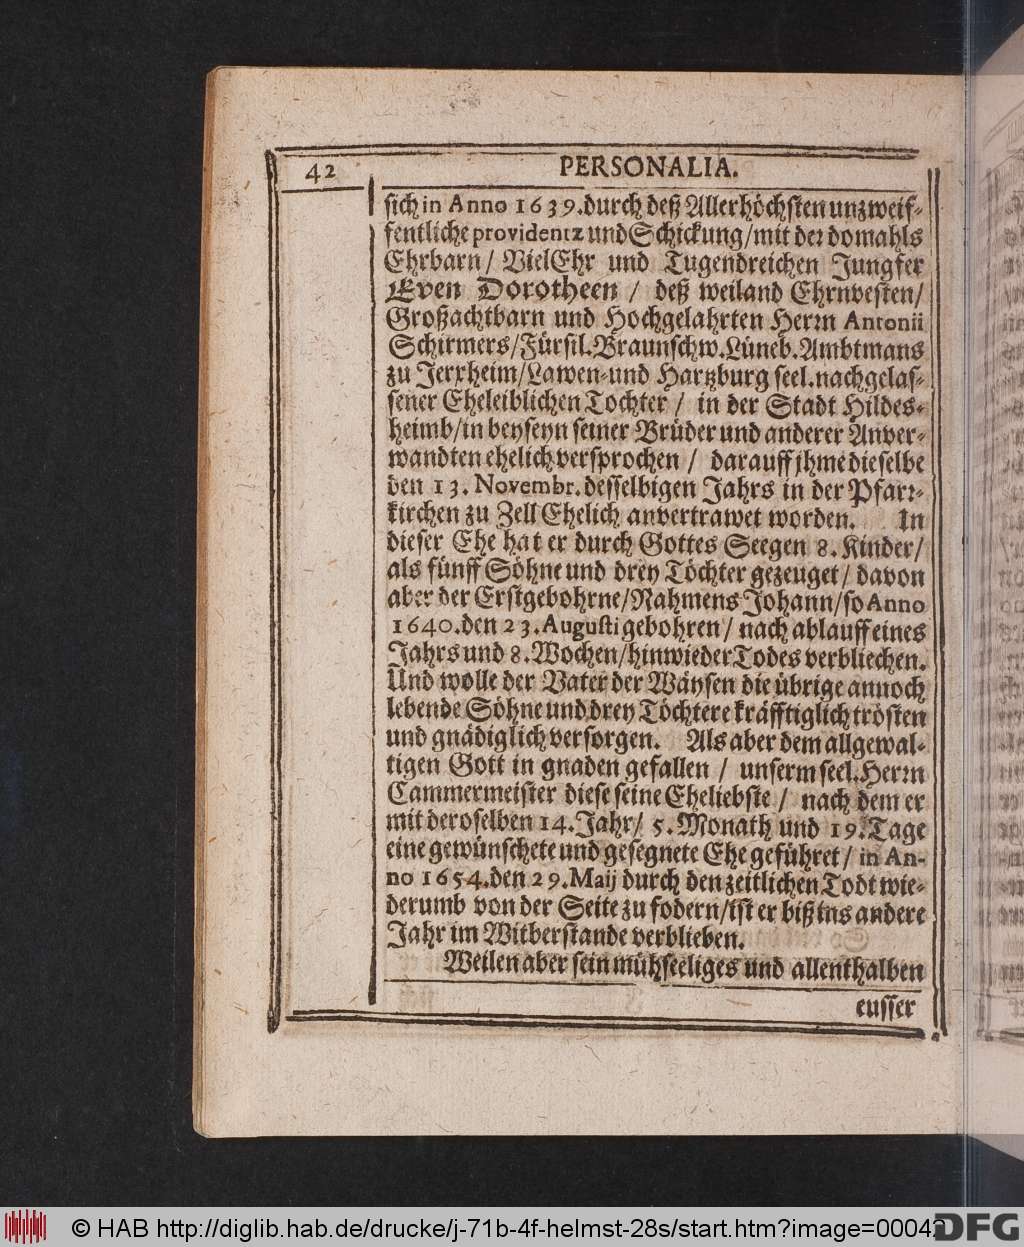 42
PERSONALIA.
sich in Anno 1639. durch deß Allerhöchsten unzweif-
fentliche providentz und Schickung/ mit der domahls
Ehrbarn/ VielEhr und Tugendreichen Jungfer
Even Dorotheen / deß weiland Ehrnvesten/
Großachtbarn und Hochgelahrten Herrn Antonii
Schirmers/ Fürstl. Braunschw. Lüneb. Ambtmans
zu Jerxheim/ Lawen- und Hartzburg seel. nachgelas-
sener Eheleiblichen Tochter / in der Stadt Hildes-
heimb/ in beyseyn seiner Brüder und anderer Anver-
wandten ehelich versprochen / darauff jhme dieselbe
den 13. Novembr. desselbigen Jahrs in der Pfarr-
kirchen zu Zell Ehelich anvertrawet worden. In
dieser Ehe hat er durch Gottes Seegen 8. Kinder/
als fünff Söhne und drey Töchter gezeuget / davon
aber der Erstgebohrne/ Nahmens Johann/ so Anno
1640. den 23. Augusti gebohren / nach ablauff eines
Jahrs und 8. Wochen/ hinwieder Todes verbliechen.
Und wolle der Vater der Wäysen die übrige annoch
lebende Söhne und drey Töchtere kräfftiglich trösten
und gnädiglich versorgen. Als aber dem allgewal-
tigen Gott in gnaden gefallen / unserm seel. Herrn
Cammermeister diese seine Eheliebste / nach dem er
mit deroselben 14. Jahr/ 5. Monath und 19. Tage
eine gewünschete und gesegnete Ehe geführet / in An-
no 1654. den 29. Maij durch den zeitlichen Todt wie-
derumb von der Seite zu fodern/ ist er biß ins andere
Jahr im Witberstande verblieben.
Weilen aber sein mühseeliges und allenthalben
eusser
© HAB http://diglib.hab.de/drucke/j-71b-4f-helmst-28s/start.htm?image=00042
DFG